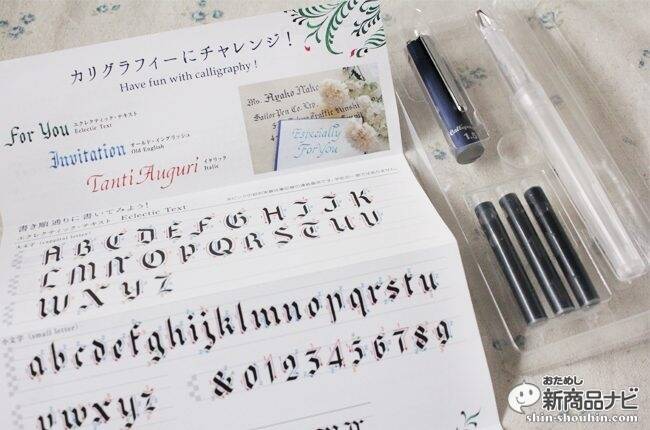 カリグラフィーにチャレンジ！
Have fun with calligraphy !
For You
エクレクティック・テキスト
Eclectic Text
Invitation
オールド・イングリッシュ
Old English
Tanti Auguri
イタリック
Italic
Ms. Ayako Nake
Sailor Pen Co. Ltd.
Especially
For You
書き順通りに書いてみよう！
エクレクティック・テキスト Eclectic Text
大文字 (capital letter)
A B C D E F G H I J K
L M N O P Q R S T U V
W X Y Z
小文字 (small letter)
a b c d e f g h i j k l m n o p q r s t u
v w x y z
& 0 1 2 3 4 5 6 7 8 9
おためし
新商品ナビ
shin-shouhin.com